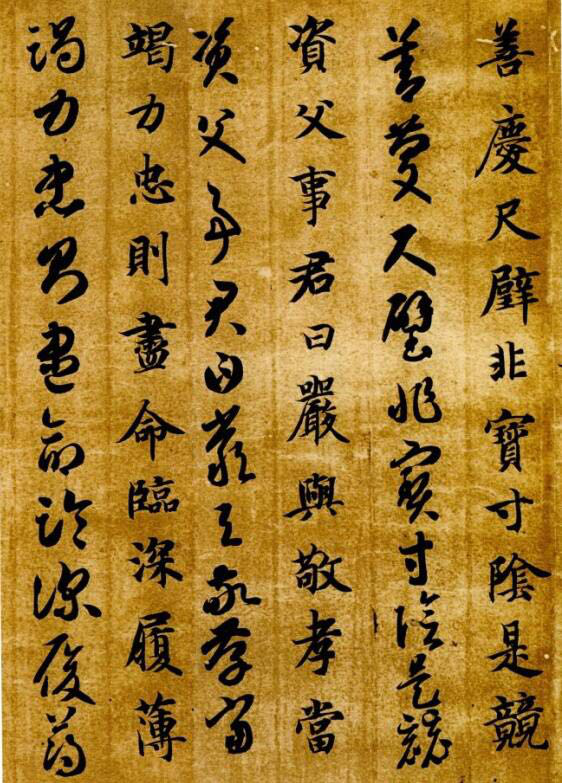 善慶尺璧非寶寸陰是競
善慶尺璧非寶寸陰是競
資父事君曰嚴與敬孝當
資父事君曰嚴與敬孝當
竭力忠則盡命臨深履薄
竭力忠則盡命臨深履薄